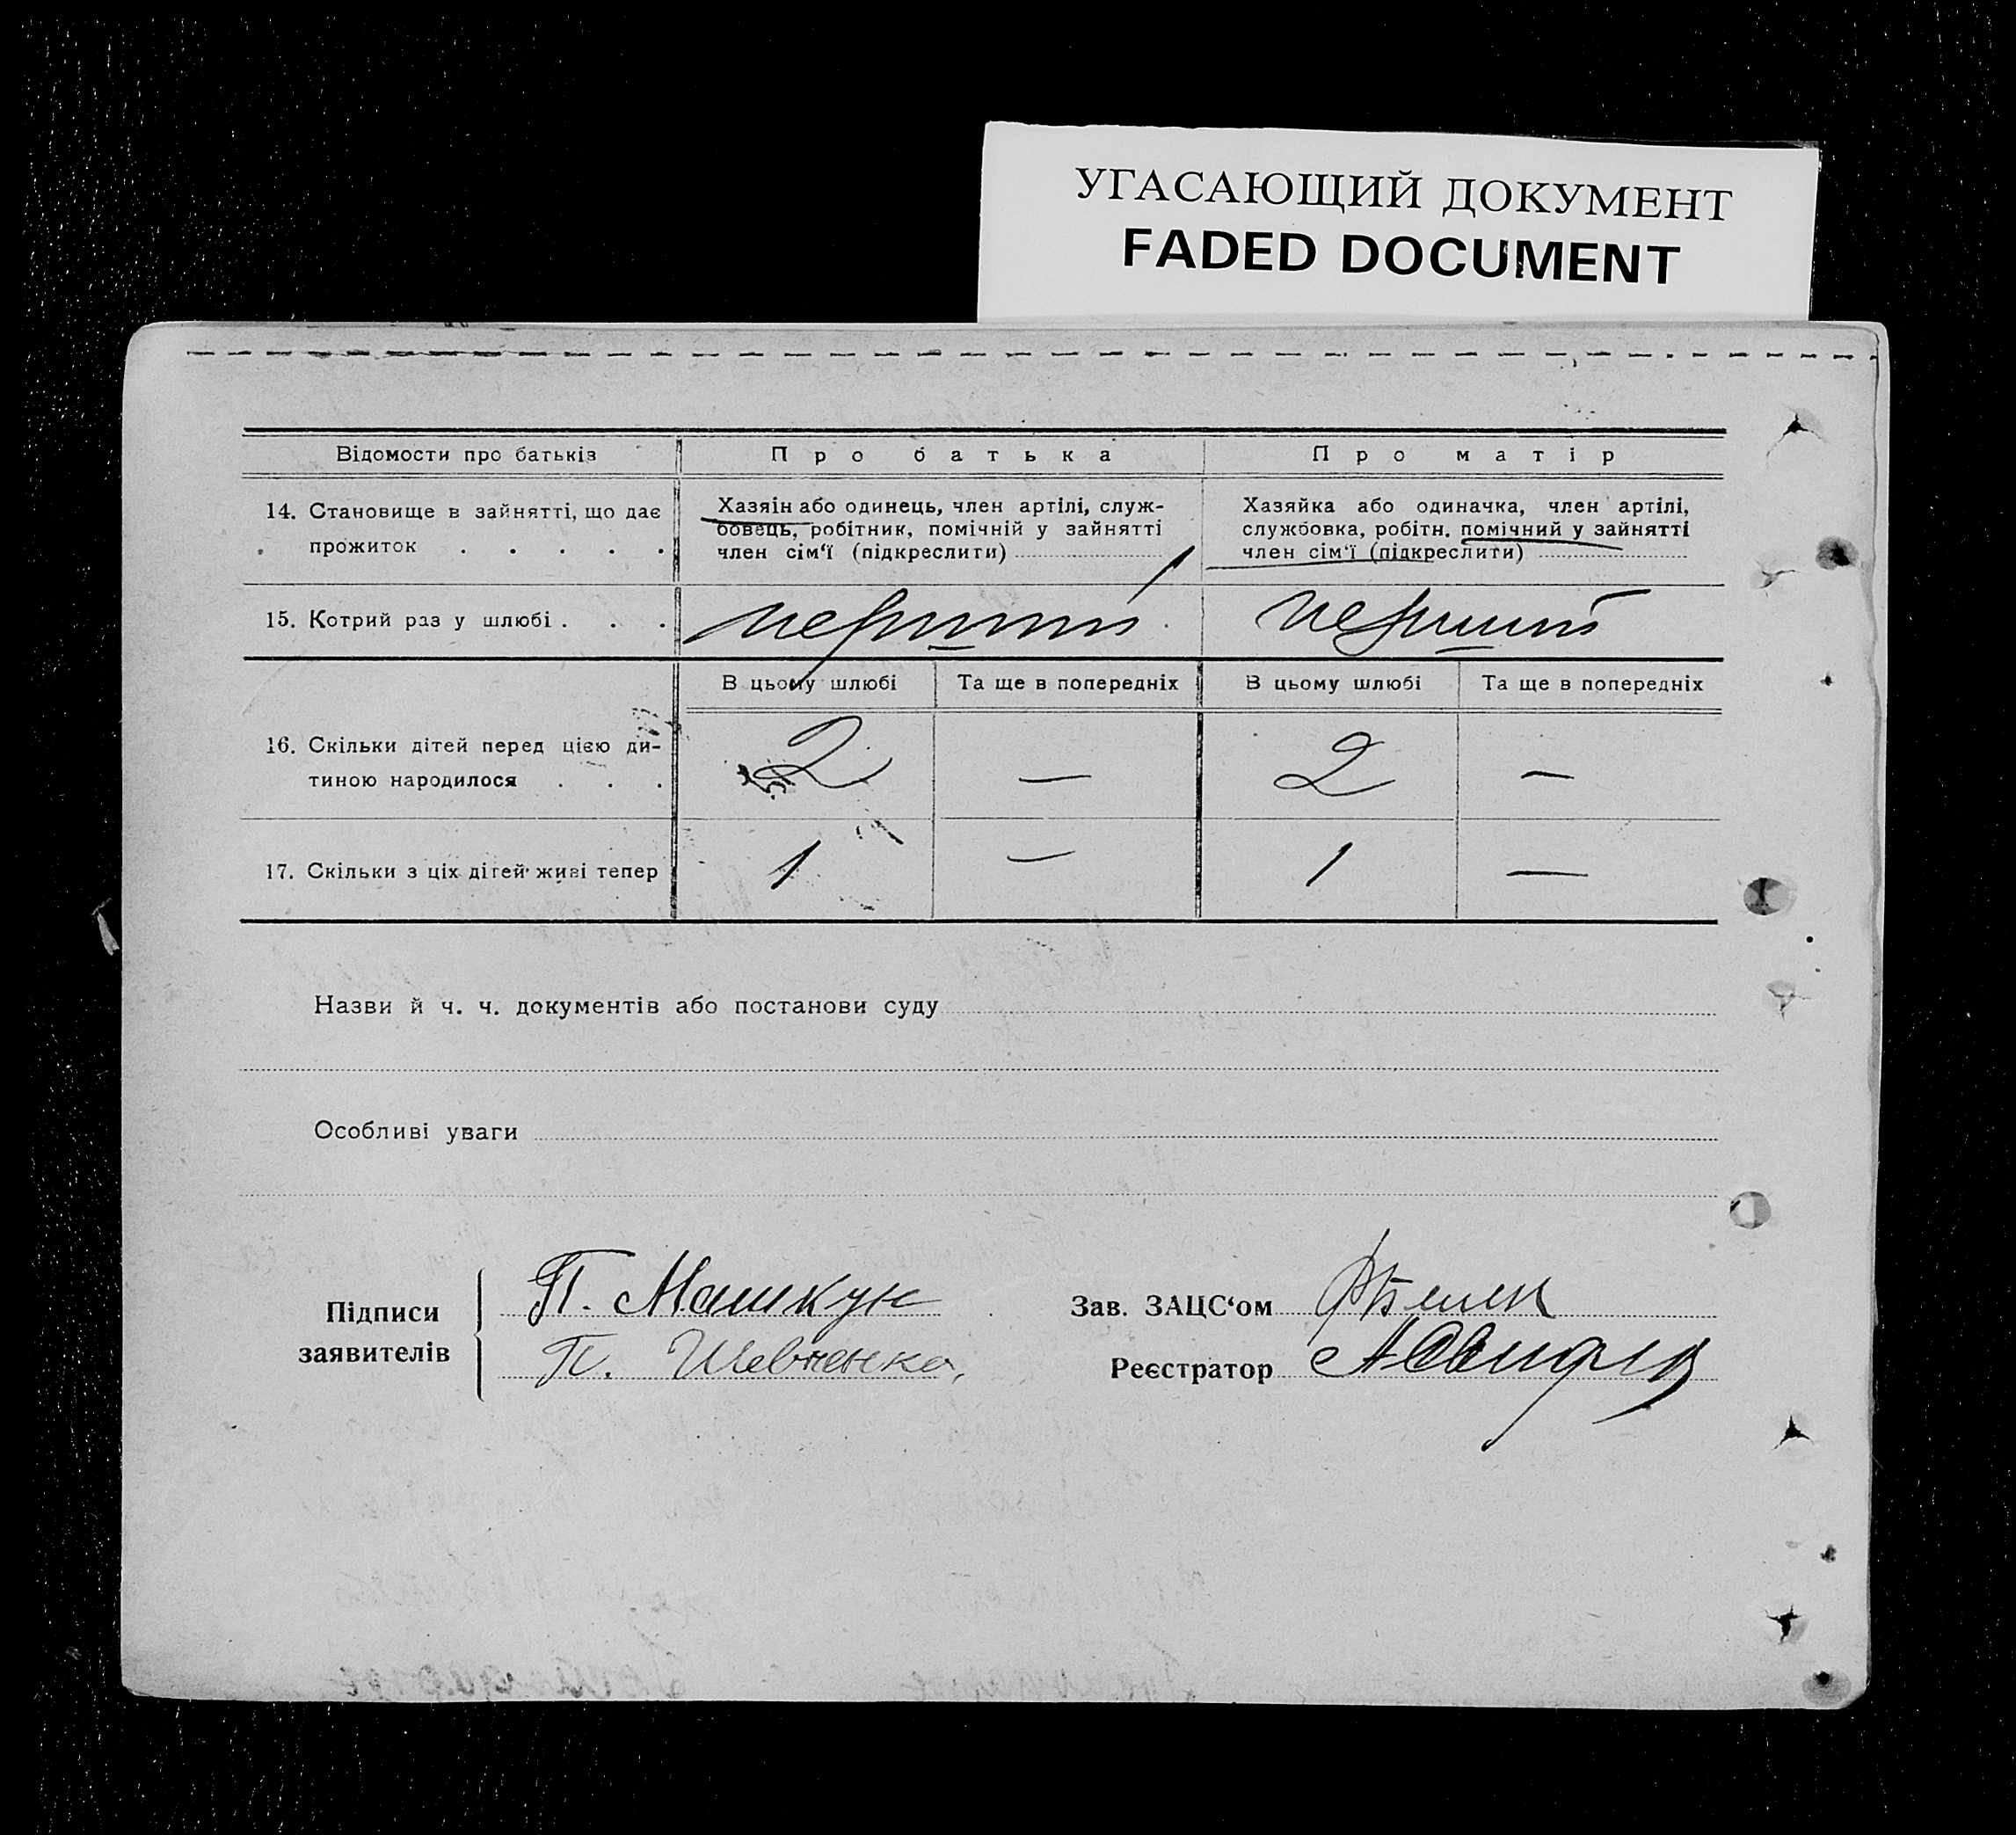 УГАСАЮЩИЙ ДОКУМЕНТ
FADED DOCUMENT
Відомости про батьків
Про батька
Про матір
14. Становище в зайнятті, що дає
прожиток . . . . .
Хазяін або одинець, член артілі, служ-
бовець, робітник, помічній у зайнятті
член сім‘ї (підкреслити)
Хазяйка або одиначка, член артілі,
службовка, робітн. помічний у зайнятті
член сім‘ї (підкреслити)
15. Котрий раз у шлюбі . . .
перший
перший
В цьому шлюбі
Та ще в попередніх
В цьому шлюбі
Та ще в попередніх
16. Скільки дітей перед цією ди-
тиною народилося . . .
2
—
2
—
17. Скільки з ціх дітей живі тепер
1
—
1
—
Назви й ч. ч. документів або постанови суду
Особливі уваги
Підписи
заявителів
П. Машкун
П. Шевченко,
Зав. ЗАЦС‘ом
Реєстратор